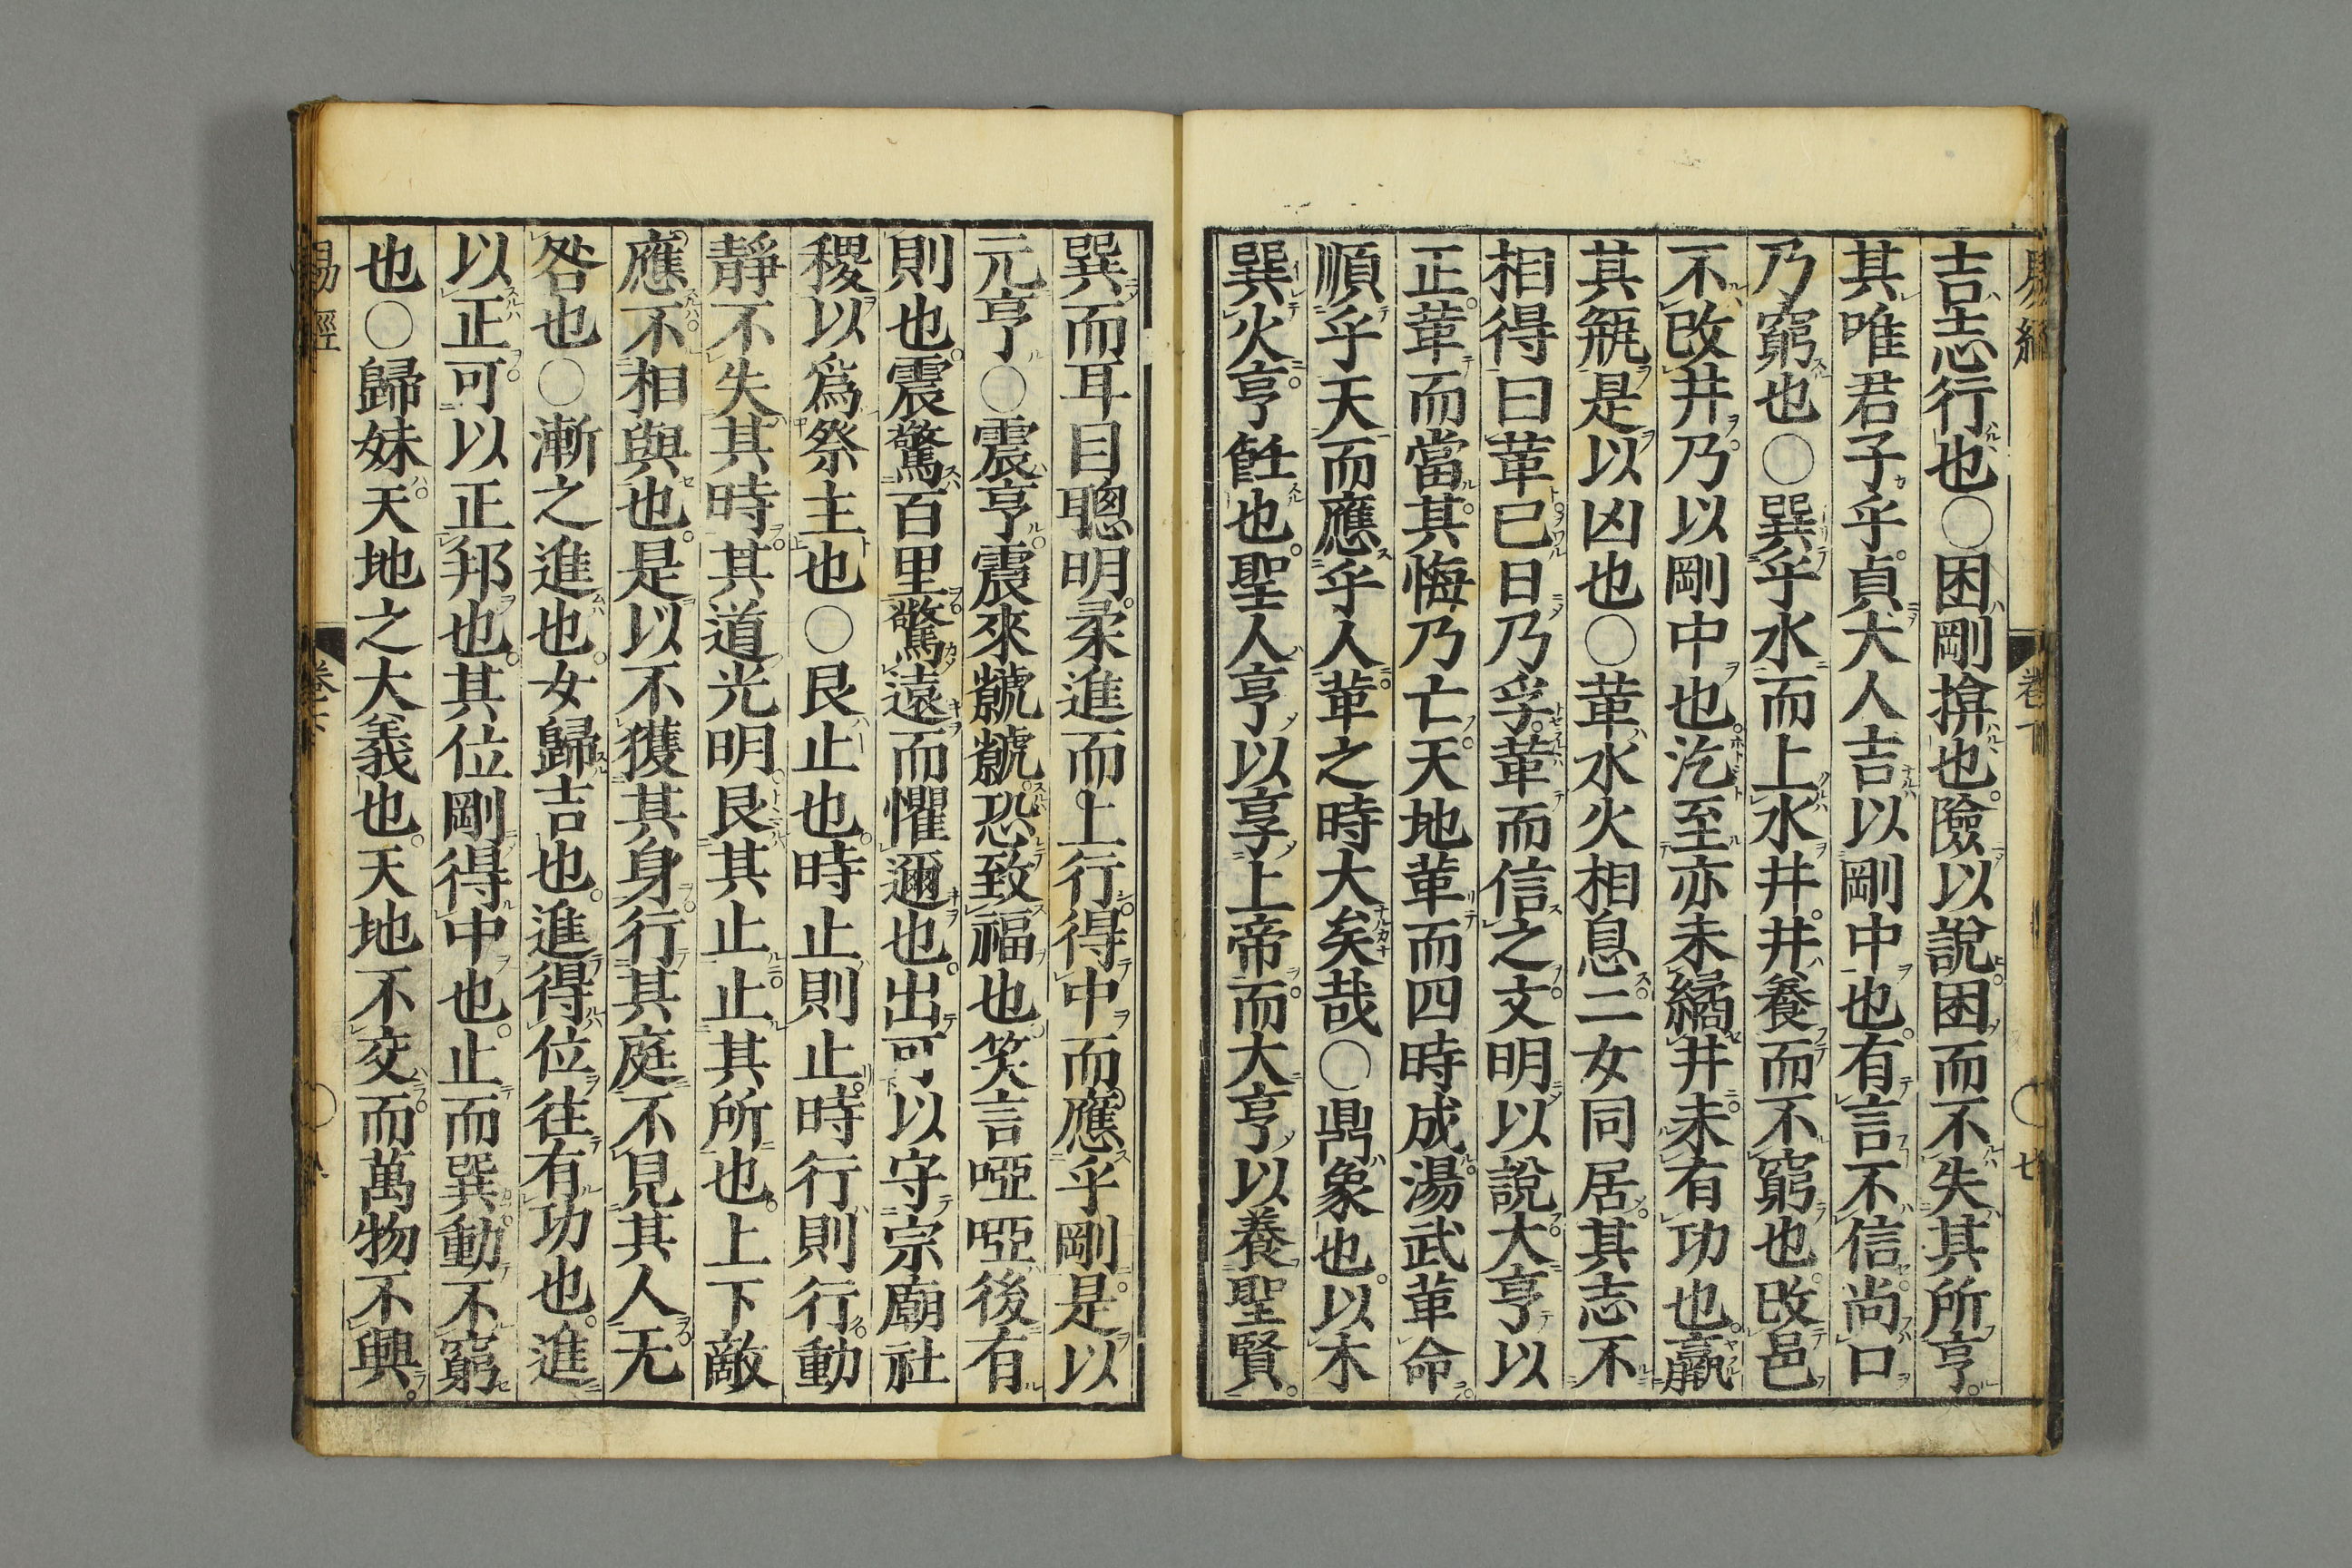 吉志行也○困剛揜也險以說困而不失其所亨
其唯君子乎貞大人吉以剛中也有言不信尚口
乃窮也○巽乎水而上水井井養而不窮也改邑
不改井乃以剛中也汔至亦未繘井未有功也羸
其瓶是以凶也○革水火相息二女同居其志不
相得曰革已日乃孚革而信之文明以說大亨以
正革而當其悔乃亡天地革而四時成湯武革命
順乎天而應乎人革之時大矣哉○鼎象也以木
巽火亨飪也聖人亨以享上帝而大亨以養聖賢
巽而耳目聰明柔進而上行得中而應乎剛是以
元亨○震亨震來虩虩恐致福也笑言啞啞後有
則也震驚百里驚遠而懼邇也出可以守宗廟社
稷以爲祭主也○艮止也時止則止時行則行動
靜不失其時其道光明艮其止止其所也上下敵
應不相與也是以不獲其身行其庭不見其人无
咎也○漸之進也女歸吉也進得位往有功也進
以正可以正邦也其位剛得中也止而巽動不窮
也○歸妹天地之大義也天地不交而萬物不興
易經